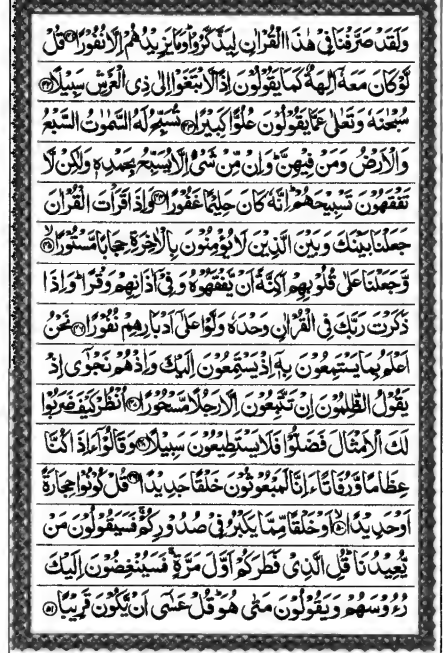 وَلَقَدْ صَرَّفْنَا فِیْ هٰذَا الْقُرْاٰنِ لِیَذَّكَّرُوْا ؕ وَمَا یَزِیْدُهُمْ اِلَّا نُفُوْرًا ﴿۴۱﴾ قُلْ
لَّوْ كَانَ مَعَهٗۤ اٰلِهَةٌ كَمَا یَقُوْلُوْنَ اِذًا لَّابْتَغَوْا اِلٰی ذِی الْعَرْشِ سَبِیْلًا ﴿۴۲﴾
سُبْحٰنَهٗ وَتَعٰلٰی عَمَّا یَقُوْلُوْنَ عُلُوًّا كَبِیْرًا ﴿۴۳﴾ تُسَبِّحُ لَهُ السَّمٰوٰتُ السَّبْعُ
وَالْاَرْضُ وَمَنْ فِیْهِنَّ ؕ وَاِنْ مِّنْ شَیْءٍ اِلَّا یُسَبِّحُ بِحَمْدِهٖ وَلٰكِنْ لَّا
تَفْقَهُوْنَ تَسْبِیْحَهُمْ ؕ اِنَّهٗ كَانَ حَلِیْمًا غَفُوْرًا ﴿۴۴﴾ وَاِذَا قَرَاْتَ الْقُرْاٰنَ
جَعَلْنَا بَیْنَكَ وَبَیْنَ الَّذِیْنَ لَا یُؤْمِنُوْنَ بِالْاٰخِرَةِ حِجَابًا مَّسْتُوْرًا ﴿۴۵﴾
وَّجَعَلْنَا عَلٰی قُلُوْبِهِمْ اَكِنَّةً اَنْ یَّفْقَهُوْهُ وَفِیْۤ اٰذَانِهِمْ وَقْرًا ؕ وَاِذَا
ذَكَرْتَ رَبَّكَ فِی الْقُرْاٰنِ وَحْدَهٗ وَلَّوْا عَلٰۤی اَدْبَارِهِمْ نُفُوْرًا ﴿۴۶﴾ نَحْنُ
اَعْلَمُ بِمَا یَسْتَمِعُوْنَ بِهٖۤ اِذْ یَسْتَمِعُوْنَ اِلَیْكَ وَاِذْ هُمْ نَجْوٰۤی اِذْ
یَقُوْلُ الظّٰلِمُوْنَ اِنْ تَتَّبِعُوْنَ اِلَّا رَجُلًا مَّسْحُوْرًا ﴿۴۷﴾ اُنْظُرْ كَیْفَ ضَرَبُوْا
لَكَ الْاَمْثَالَ فَضَلُّوْا فَلَا یَسْتَطِیْعُوْنَ سَبِیْلًا ﴿۴۸﴾ وَقَالُوْۤا ءَاِذَا كُنَّا
عِظَامًا وَّرُفَاتًا ءَاِنَّا لَمَبْعُوْثُوْنَ خَلْقًا جَدِیْدًا ﴿۴۹﴾ قُلْ كُوْنُوْا حِجَارَةً
اَوْ حَدِیْدًا ﴿۵۰﴾ اَوْ خَلْقًا مِّمَّا یَكْبُرُ فِیْ صُدُوْرِكُمْ ۚ فَسَیَقُوْلُوْنَ مَنْ
یُّعِیْدُنَا ؕ قُلِ الَّذِیْ فَطَرَكُمْ اَوَّلَ مَرَّةٍ ۚ فَسَیُنْغِضُوْنَ اِلَیْكَ
رُءُوْسَهُمْ وَیَقُوْلُوْنَ مَتٰی هُوَ ؕ قُلْ عَسٰۤی اَنْ یَّكُوْنَ قَرِیْبًا ﴿۵۱﴾